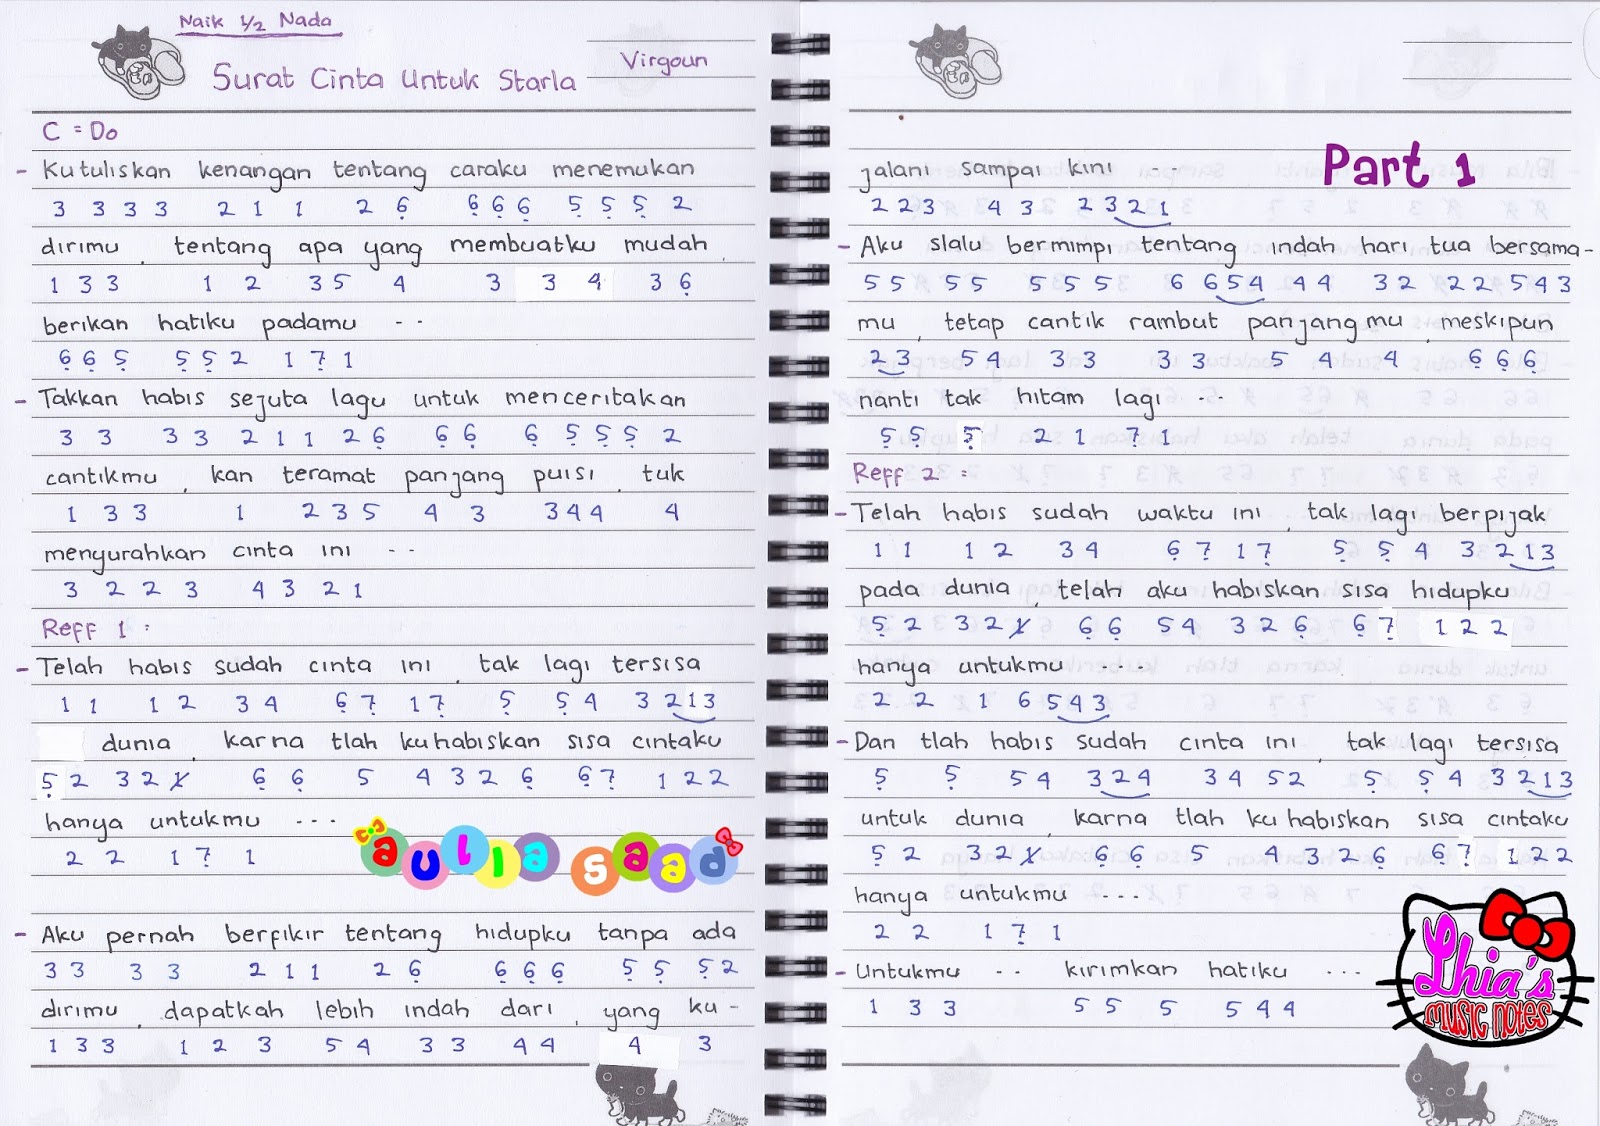 Naik 1/2 Nada
Virgoun
Surat Cinta Untuk Starla
C = Do
- Kutuliskan kenangan tentang caraku menemukan
3 3 3 3 2 1 1 2 6̣ 6̣ 6̣ 6̣ 5̣ 5̣ 5̣ 2
dirimu, tentang apa yang membuatku mudah,
1 3 3 1 2 3 5 4 3 3 4 3 6̣
berikan hatiku padamu - -
6̣ 6̣ 5̣ 5̣ 5̣ 2 1 7̣ 1
- Takkan habis sejuta lagu untuk menceritakan
3 3 3 3 2 1 1 2 6̣ 6̣ 6̣ 6̣ 5̣ 5̣ 5̣ 2
cantikmu, kan teramat panjang puisi, tuk
1 3 3 1 2 3 5 4 3 3 4 4 4
menyurahkan cinta ini - -
3 2 2 3 4 3 2 1
Reff 1 :
- Telah habis sudah cinta ini, tak lagi tersisa
1 1 1 2 3 4 6̣ 7̣ 1 7̣ 5̣ 5̣ 4 3 2 1 3
dunia, karna tlah kuhabiskan sisa cintaku
5̣ 2 3 2 1̸ 6̣ 6̣ 5 4 3 2 6̣ 6̣ 7̣ 1 2 2
hanya untukmu - - -
2 2 1 7̣ 1
aulia saad
- Aku pernah berfikir tentang hidupku tanpa ada
3 3 3 3 2 1 1 2 6̣ 6̣ 6̣ 6̣ 5̣ 5̣ 5̣ 2
dirimu, dapatkah lebih indah dari, yang ku-
1 3 3 1 2 3 5 4 3 3 4 4 4 3
Part 1
jalani sampai kini - - -
2 2 3 4 3 2 3 2 1
- Aku slalu bermimpi tentang indah hari tua bersama-
5 5 5 5 5 5 5 6 6 5 4 4 4 3 2 2 2 5 4 3
mu, tetap cantik rambut panjangmu, meskipun
2 3 5 4 3 3 3 3 5 4 4 6̣ 6̣ 6̣
nanti tak hitam lagi - -
5̣ 5̣ 5̣ 2 1 7̣ 1
Reff 2 :
- Telah habis sudah waktu ini, tak lagi berpijak
1 1 1 2 3 4 6̣ 7̣ 1 7̣ 5̣ 5̣ 4 3 2 1 3
pada dunia, telah aku habiskan sisa hidupku
5̣ 2 3 2 1̸ 6̣ 6̣ 5 4 3 2 6̣ 6̣ 7̣ 1 2 2
hanya untukmu - - - -
2 2 1 6 5 4 3
- Dan tlah habis sudah cinta ini, tak lagi tersisa
5̣ 5̣ 5 4 3 2 4 3 4 5 2 5̣ 5̣ 4 3 2 1 3
untuk dunia, karna tlah kuhabiskan sisa cintaku
5̣ 2 3 2 1̸ 6̣ 6̣ 5 4 3 2 6̣ 6̣ 7̣ 1 2 2
hanya untukmu - - -
2 2 1 7̣ 1
- Untukmu - - kirimkan hatiku - - -
1 3 3 5 5 5 5 4 4
Lhia's
music notes